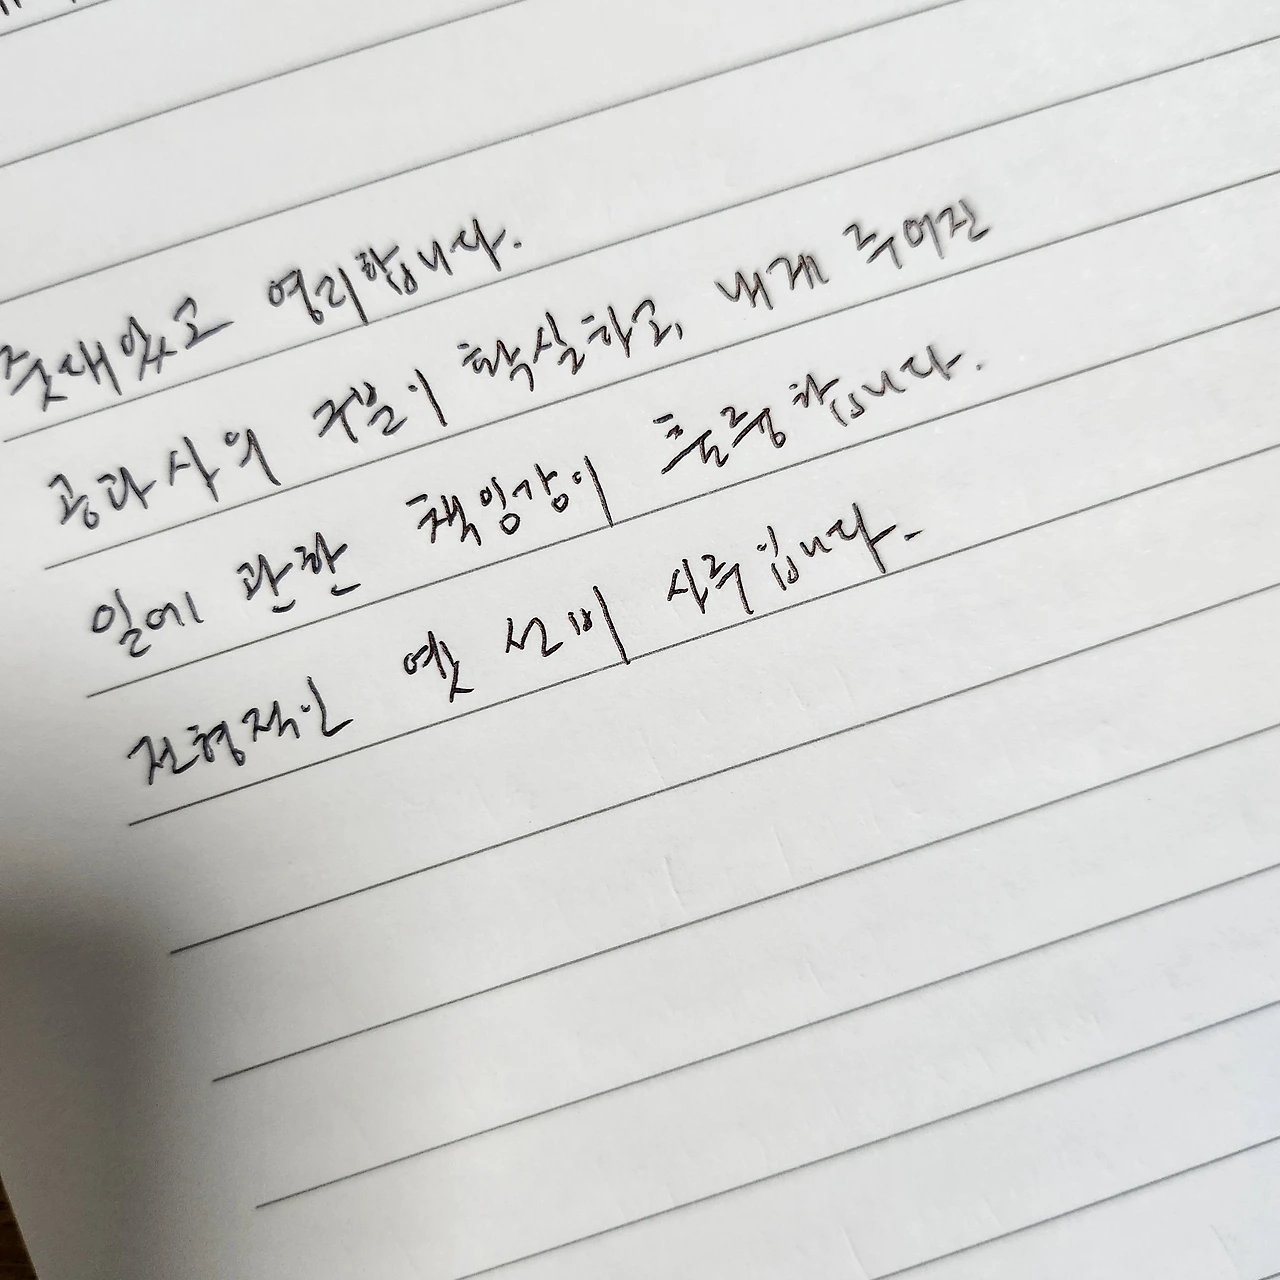 줏대있고 영리합니다.
공과 사의 구분이 확실하고, 내게 주어진
일에 관한 책임감이 출중합니다.
전형적인 옛 선비 사주입니다.